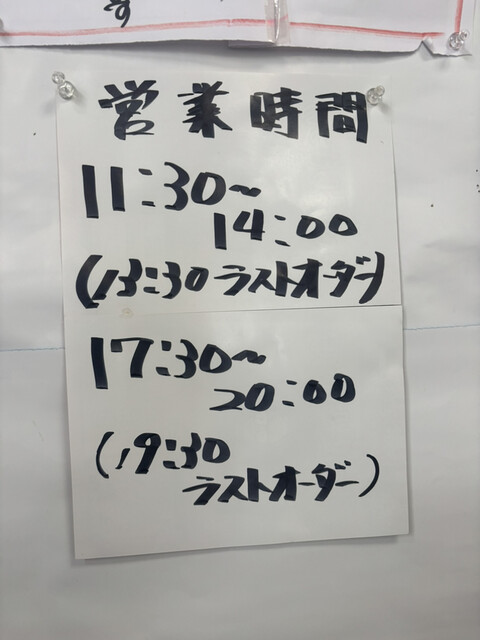 す
営業時間
11:30~
14:00
(13:30ラストオーダー)
17:30~
20:00
(19:30
ラストオーダー)